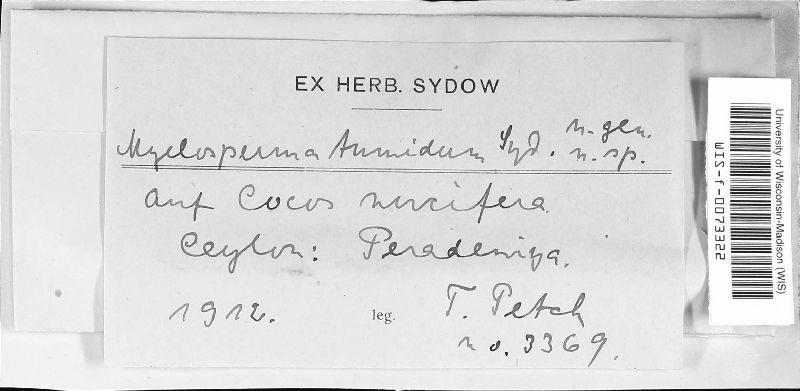 EX HERB. SYDOW
Myelosperma tumidum Syd. n. gen. n. sp.
auf Cocos nucifera
Ceylon: Peradeniya.
1912. leg. T. Petch
no. 3369.
University of Wisconsin-Madison (WIS)
WIS-f-0073322